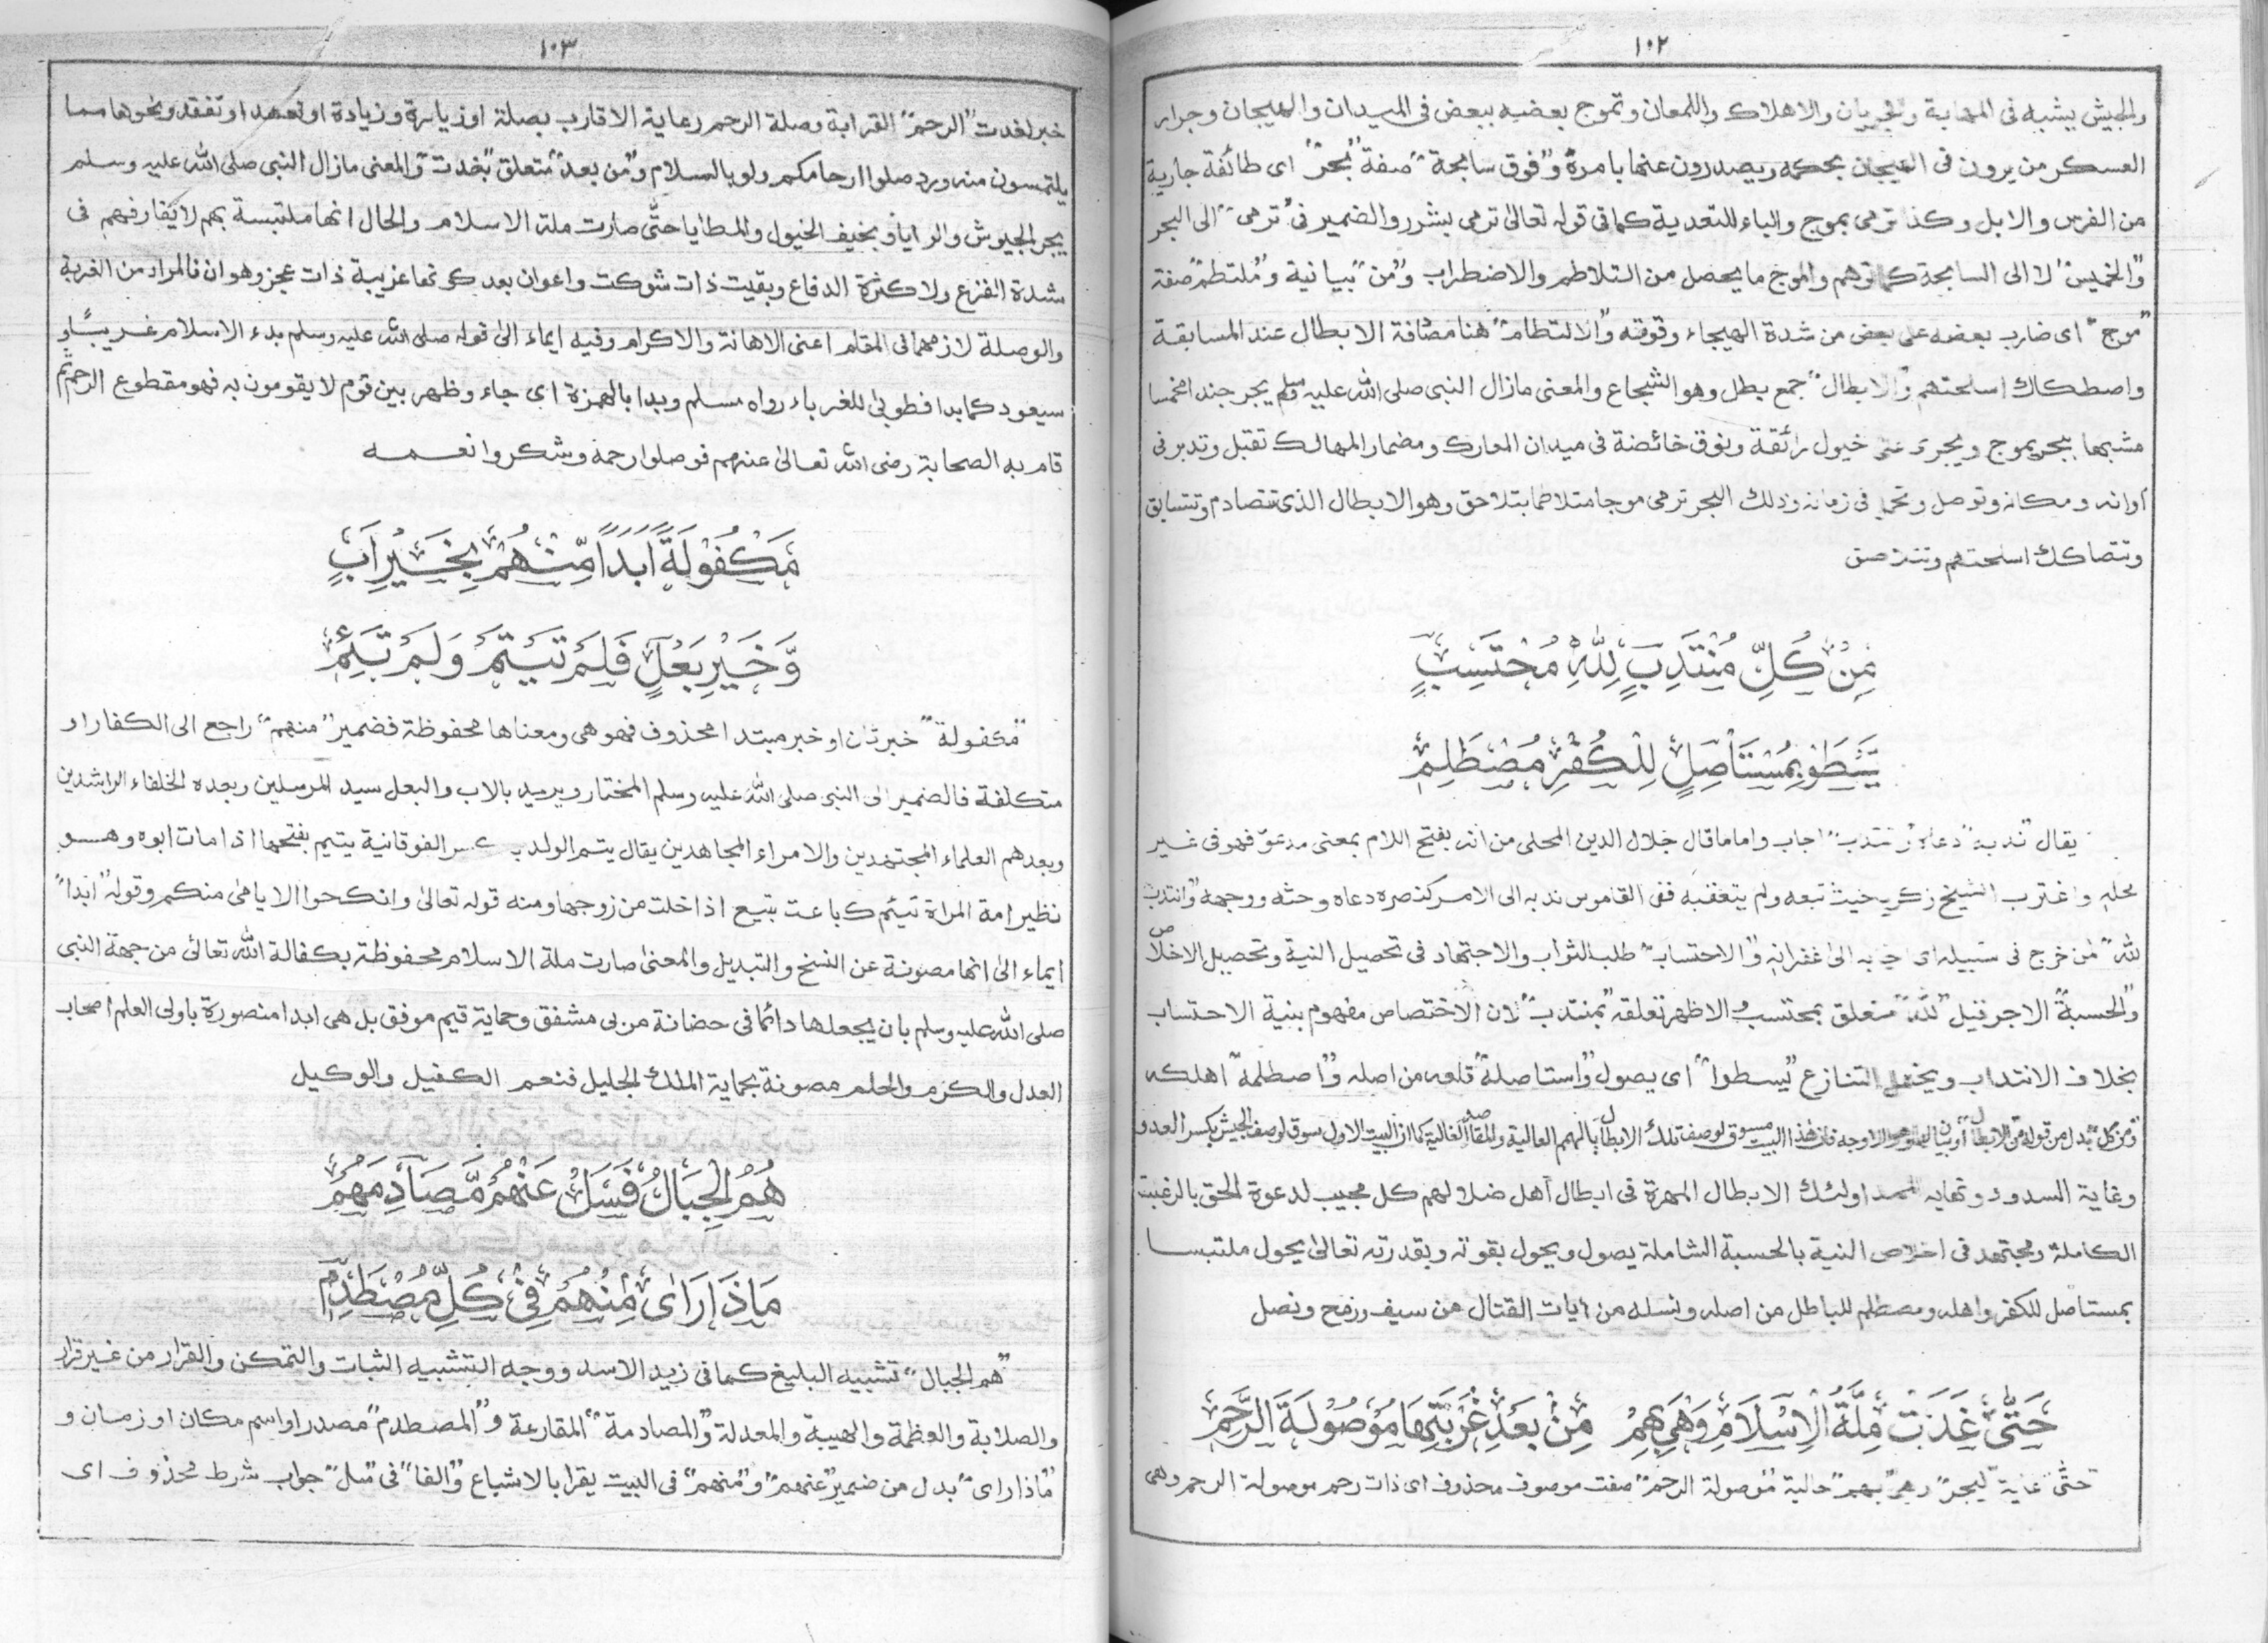 ١٠٢
والجيش يشبه فى المهابة والجريان والاهلاك واللمعان وتموج بعضه ببعض فى الميدان والهيجان وجرار
العسكر من يرون فى الهيجان بحكمه ويصدرون عنها بامره و"فوق سابحة" صفة "بحر" اى طائفة جارية
من الفرس والابل وكذا ترمى بموج والباء للتعدية كما فى قوله تعالى ترمى بشرر والضمير فى "ترمى" الى البحر
و"الخميس" لا الى السابحة كما توهم والموج ما يحصل من التلاطم والاضطراب و"من" بيانية و"ملتطم" صفة
"موج" اى ضارب بعضه على بعض من شدة الهيجاء وقوته و"الالتطام" هنا مصادفة الابطال عند المسابقة
واصطكاك اسلحتهم و"الابطال" جمع بطل وهو الشجاع والمعنى مازال النبى صلى الله عليه وسلم يجر جندا خمسا
مشبها ببحر يموج ويجرى على خيول رائقة ونوق خائضة فى ميدان المعارك ومضمار المهالك تقبل وتدبر فى
اوانه ومكانه وتوصل وتحمل فى زمانه وذلك البحر ترمى موجا متلاطما بتلاحق وهو الابطال الذى تتصادم وتتسابق
وتتصاكك اسلحتهم
مِنْ كُلِّ مُنْتَدِبٍ لِلّٰهِ مُحْتَسِبٍ
يَسْطُوْ بِمُسْتَأْصِلٍ لِلْكُفْرِ مُصْطَلِمِ
يقال "ندبه" دعاه و"نتدب" اجاب واما ما قال جلال الدين المحلى من انه بفتح اللام بمعنى مدعو فهو فى غير
محله واغترب الشيخ زكريا حيث تبعه ولم يتعقبه ففى القاموس ندبه الى الامر كنصره دعاه وحثه ووجهه و"انتدب
لله" لمن خرج فى سبيله اى اجابه الى غفرانه و"الاحتساب" طلب الثواب والاجتهاد فى تحصيل النية وتحصيل الاخلاص
و"الحسبة" الاجر قيل "لله" متعلق بمحتسب والاظهر تعلقه "بمنتدب" لان الاختصاص مفهوم بنية الاحتساب
بخلاف الانتداب ويحتمل التنازع "يسطوا" اى يصول و"استاصله" قلعه من اصله و"اصطلمه" اهلكه
و"من كل" بدل من قوله من الابطال او بيان لهم وهو الاوجه فان هذا البيت مسوق لوصف تلك الابطال بالهمم العالية والمقاصد الغالية كما ان البيت الاول سوق لوصف الجيش بكسر العدو
وغاية السدود ونهاية اولئك الابطال المهرة فى ابطال اهل ضلالهم كل مجيب لدعوة الحق بالرغبت
الكاملة ومجتهد فى اخلاص النية بالحسبة الشاملة يصول ويحول بقوته وبقدرته تعالى يحول ملتبسا
بمستاصل للكفر واهله ومصطلم للباطل من اصله ونسله من ايات القتال من سيف ورمح ونصل
حَتّٰى غَدَتْ مِلَّةُ الْاِسْلَامِ وَهْيَ بِهِمْ مِنْ بَعْدِ غُرْبَتِهَا مَوْصُوْلَةَ الرَّحِمِ
"حتى" غاية "ليجر" "وهى بهم" حالية "موصولة الرحم" صفت موصوف محذوف اى ذات رحم موصولة الرحم وهى
١٠٣
خبر لغدت "الرحم" القرابة وصلة الرحم رعاية الاقارب بصلة او زيارة وزيادة او تعهد او تفقد ونحوها مما
يلتمسون منه ورد صلوا ارحامكم ولو بالسلام و"من بعد" متعلق "بغدت" والمعنى مازال النبى صلى الله عليه وسلم
يجر الجيوش والرايا و بخيف الخيول والمطايا حتى صارت ملة الاسلام والحال انها ملتبسة بهم لا يفارقهم فى
شدة الفزع ولا كثرة الدفاع وبقيت ذات شوكت واعوان بعد كونها غريبة ذات عجز وهوان فالمراد من الغربة
والوصلة لازمهما فى المقام اعنى الاهانة والاكرام وفيه ايماء الى قوله صلى الله عليه وسلم بدء الاسلام غريبًا و
سيعود كما بدا فطوبى للغرباء رواه مسلم وبدا بالهمزة اى جاء وظهر بين قوم لا يقومون به فهو مقطوع الرحم ثم
قام به الصحابة رضى الله تعالى عنهم فوصلوا رحمه وشكروا نعمه
مَكْفُوْلَةً اَبَدًا مِّنْهُمْ بِخَيْرِ اَبٍ
وَّخَيْرِ بَعْلٍ فَلَمْ تَيْتَمْ وَلَمْ تَئِمِ
"مكفولة" خبر ثان او خبر مبتدا محذوف فهو هى ومعناها محفوظة فضمير "منهم" راجع الى الكفار او
متكلفة فالضمير الى النبى صلى الله عليه وسلم المختار ويريد بالاب والبعل سيد المرسلين وبعده الخلفاء الراشدين
وبعدهم العلماء المجتهدين والامراء المجاهدين يقال يتم الولد بكسر الفوقانية يتيم بفتحها اذا مات ابوه وهو
نظير امة المراة تئيم كباعت تبيع اذا خلت من زوجها ومنه قوله تعالى وانكحوا الايامى منكم وقوله "ابدا"
ايماء الى انها مصونة عن النسخ والتبديل والمعنى صارت ملة الاسلام محفوظة بكفالة الله تعالى من جهة النبى
صلى الله عليه وسلم بان يجعلها دائما فى حضانة مربى مشفق وحماية قيم موفق بل هى ابدا منصورة باولى العلم اصحاب
العدل والكرم والحلم مصونة بحماية الملك الجليل فنعم الكفيل والوكيل
هُمُ الْجِبَالُ فَسَلْ عَنْهُمْ مُّصَادِمَهُمْ
مَاذَا رَاٰى مِنْهُمْ فِيْ كُلِّ مُصْطَدَمِ
"هم الجبال" تشبيه البليغ كما فى زيد الاسد ووجه التشبيه الثبات والتمكن والقرار من غير قرار
والصلابة والعظمة والهيبة والمعدلة و"المصادمة" المقارعة و"المصطدم" مصدر او اسم مكان او زمان و
"ماذا راى" بدل من ضمير "عنهم" و"منهم" فى البيت يقرا بالاشباع و"الفا" فى "سل" جواب شرط محذوف اى